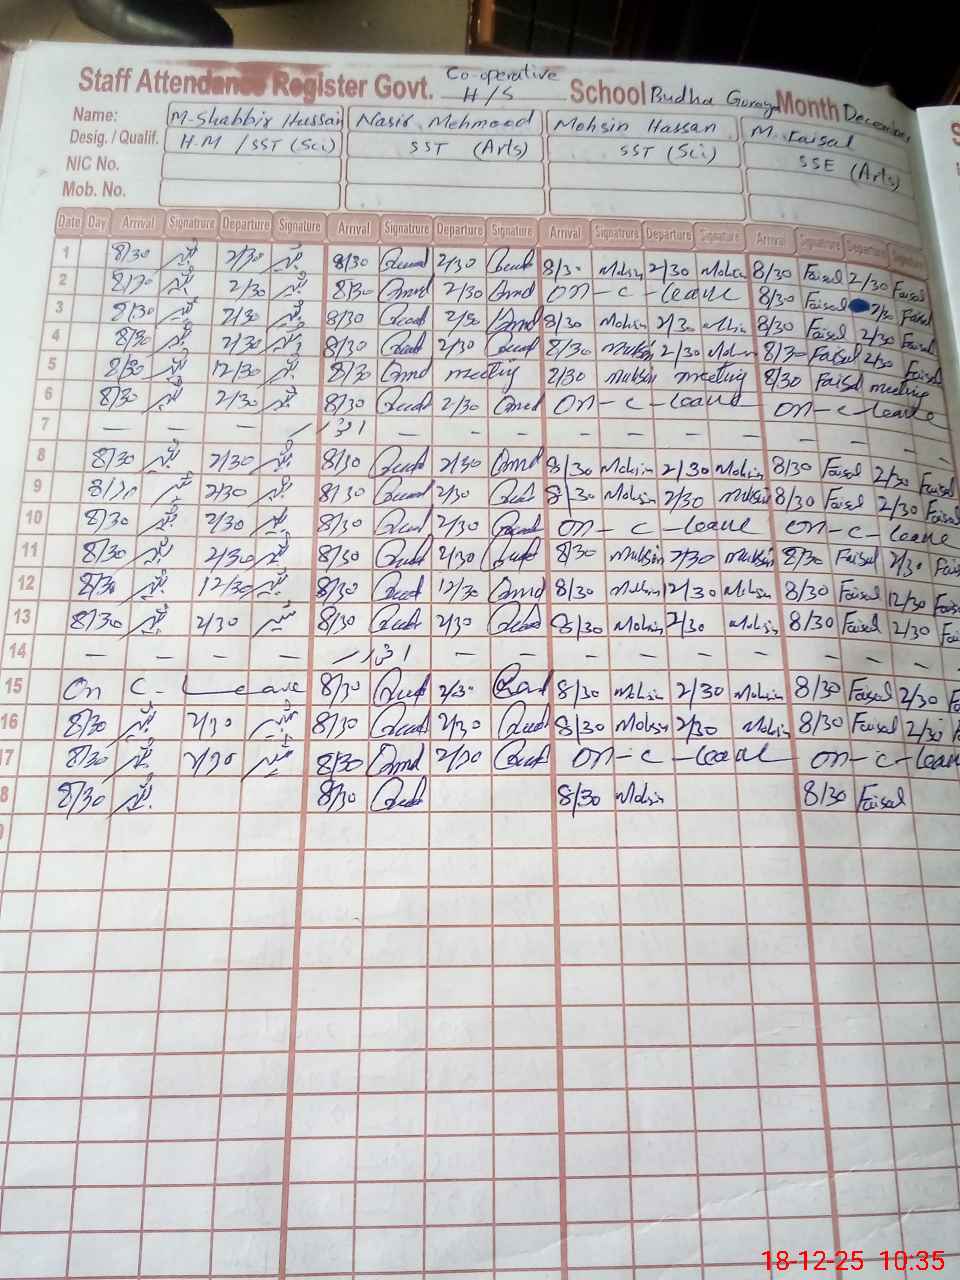 Staff Attendance Register Govt. Co-operative H/S School Budha Goraya Month December
Name: M-Shabbir Hussan Nasir Mehmood Mohsin Hassan M. Faisal
Desig. / Qualif. H.M / SST (Sci) SST (Arts) SST (Sci) SSE (Arts)
NIC No.
Mob. No.
Date Day Arrival Signatrure Departure Signature Arrival Signatrure Departure Signature Arrival Signatrure Departure Signature Arrival Signatrure Departure Signature
1 8/30 2/30 8/30 2/30 8/30 Mohsin 2/30 Mohsin 8/30 Faisal 2/30 Faisal
2 8/30 2/30 8/30 2/30 on-c-leave 8/30 Faisal 2/30 Faisal
3 8/30 2/30 8/30 2/30 8/30 Mohsin 2/30 Mohsin 8/30 Faisal 2/30 Faisal
4 8/30 2/30 8/30 2/30 8/30 Mohsin 2/30 Mohsin 8/30 Faisal 2/30 Faisal
5 8/30 12/30 8/30 meeting Mohsin meeting 8/30 Faisal meeting
6 8/30 2/30 8/30 2/30 on-c-leave on-c-leave
7 — — — — اتوار — — — — — — — — —
8 8/30 2/30 8/30 2/30 8/30 Mohsin 2/30 Mohsin 8/30 Faisal 2/30 Faisal
9 8/30 2/30 8/30 2/30 8/30 Mohsin 2/30 Mohsin 8/30 Faisal 2/30 Faisal
10 8/30 2/30 8/30 2/30 on-c-leave on-c-leave
11 8/30 2/30 8/30 2/30 8/30 Mohsin 2/30 Mohsin 8/30 Faisal 2/30
12 8/30 12/30 8/30 12/30 8/30 Mohsin 12/30 Mohsin 8/30 Faisal 12/30
13 8/30 2/30 8/30 2/30 8/30 Mohsin 2/30 Mohsin 8/30 Faisal 2/30
14 — — — — اتوار — — — — — — — — —
15 On C-Leave 8/30 2/30 8/30 Mohsin 2/30 Mohsin 8/30 Faisal 2/30
16 8/30 2/30 8/30 2/30 8/30 Mohsin 2/30 Mohsin 8/30 Faisal 2/30
17 8/30 2/30 8/30 2/30 on-c-leave on-c-leave
8 8/30 8/30 8/30 Mohsin 8/30 Faisal
18-12-25 10:35